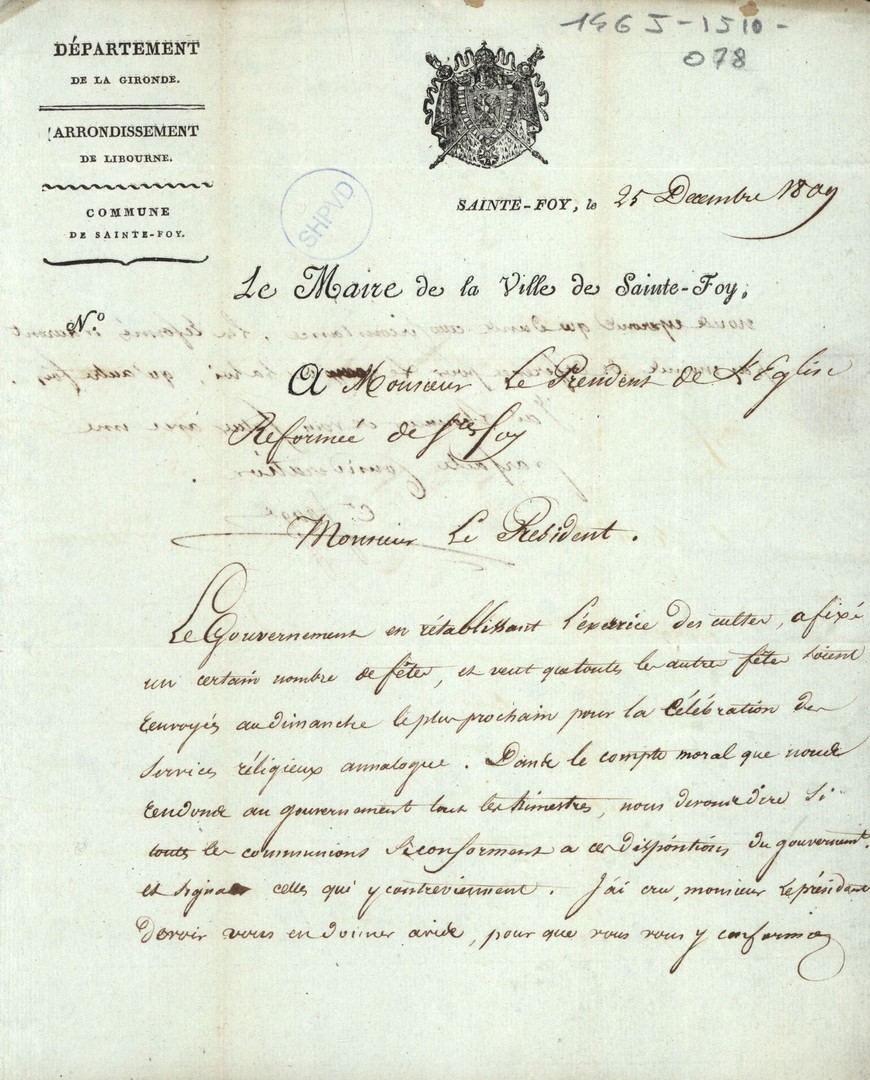 1465-1510-
078
DÉPARTEMENT
DE LA GIRONDE.
ARRONDISSEMENT
DE LIBOURNE.
COMMUNE
DE SAINTE-FOY.
SHPVD
SAINTE-FOY, le 25 Decembre 1809
Le Maire de la Ville de Sainte-Foy,
N.º
A Monsieur Le President de L'Eglise
Reformée de Ste foy
Monsieur Le President.
Le Gouvernement en rétablissant l'éxercice des cultes, a fixé
un certain nombre de fêtes, et veut que toutes les autres fêtes soient
renvoyés au dimanche le plus prochain pour la Célébration des
Services réligieux annalogue. Dans le compte moral que nous
rendons au gouvernement tous les trimestres, nous devons dire si
touts les communions se conforment a ces dispositions du gouvernemt.
et signaler celles qui y contreviennent. J'ai cru, monsieur le président
devoir vous en donner avis, pour que vous vous y conformiez